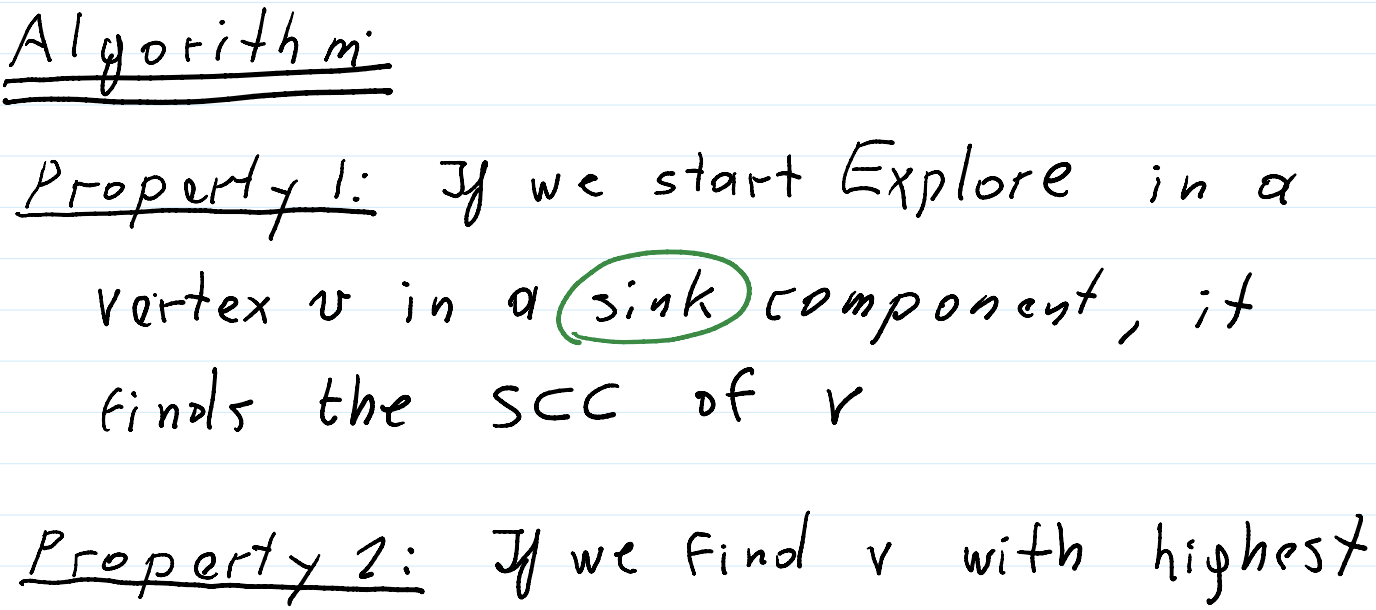 Algorithm:
Property 1: If we start Explore in a
vertex v in a sink component, it
finds the SCC of v
Property 2: If we find v with highest